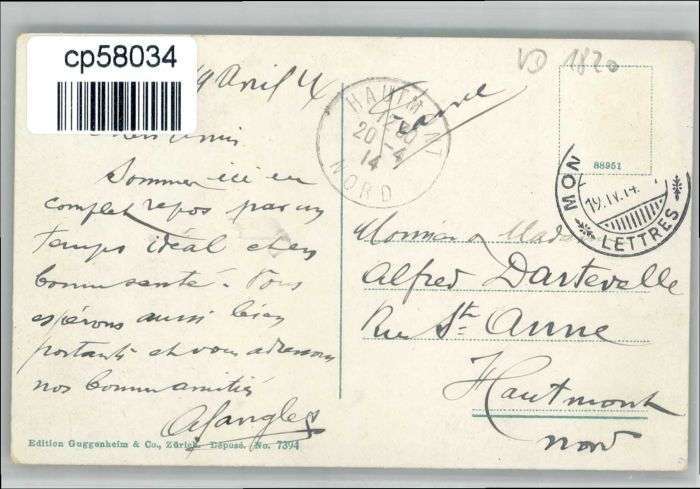 cp58034
VD 1820
19 Avril 14
HAUTMONT
12 00
20 -4
14
NORD
France
88951
MON
19.IV.14.
LETTRES
Sommes ici en
complet repos par un
temps idéal et en
bonne santé. Vous
espérons aussi bien
portants et vous adressons
nos bonnes amitiés
Monsieur Madame
Alfred Dartevelle
Rue St. Anne
Hautmont
Nord
Edition Guggenheim & Co., Zürich. Déposé. No. 7394